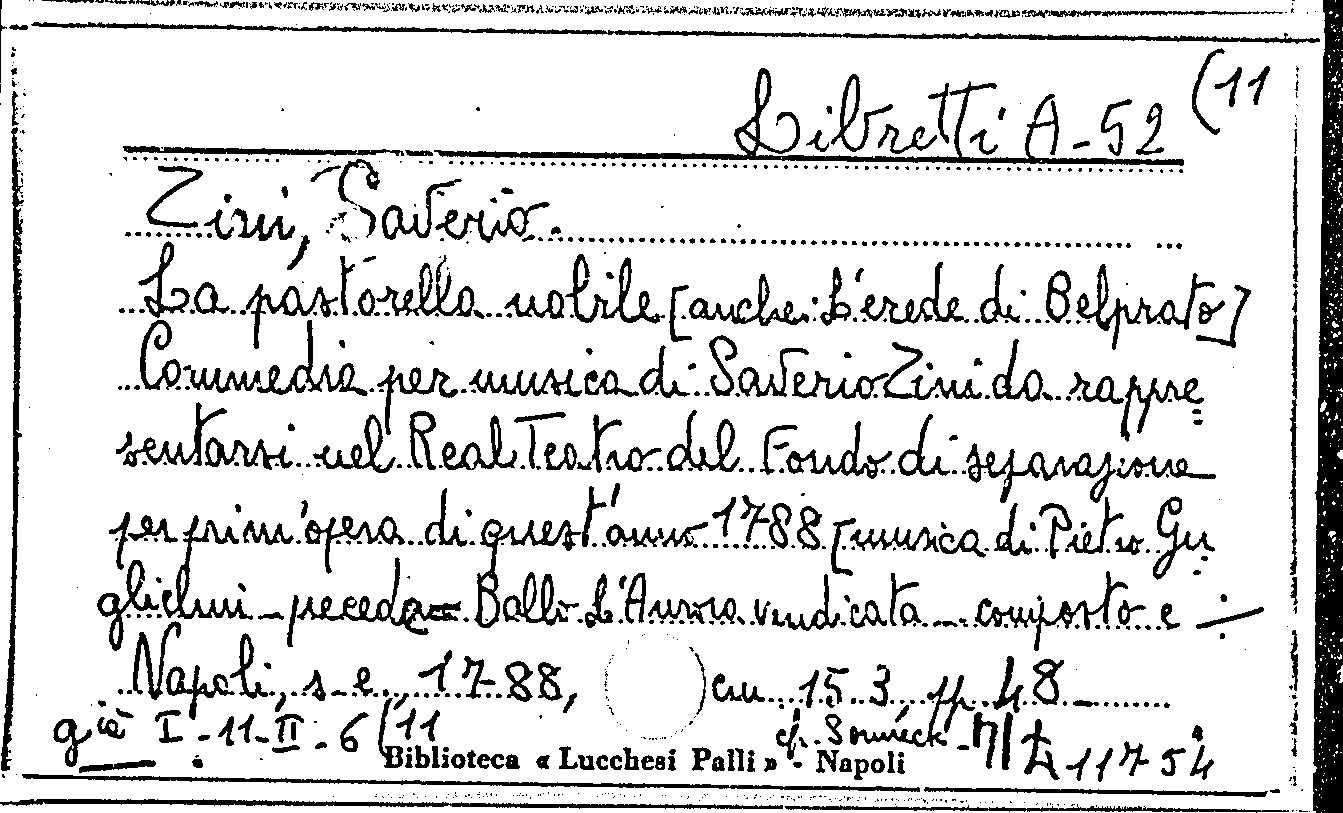 Libretti A-52 (11
Zini, Saverio.
La pastorella nobile [anche: L'erede di Belprato]
Commedia per musica di Saverio Zini da rappre=
sentarsi nel Real Teatro del Fondo di separazione
per prim'opera di quest'anno 1788 [musica di Pietro Gu=
glielmi - precede= Ballo L'Aurora vendicata - composto e ÷
Napoli, s.e., 1788, cm 15.3 pp. 48
già I-11-II-6 (11
cfr. Sonneck - 11754
Biblioteca « Lucchesi Palli » - Napoli